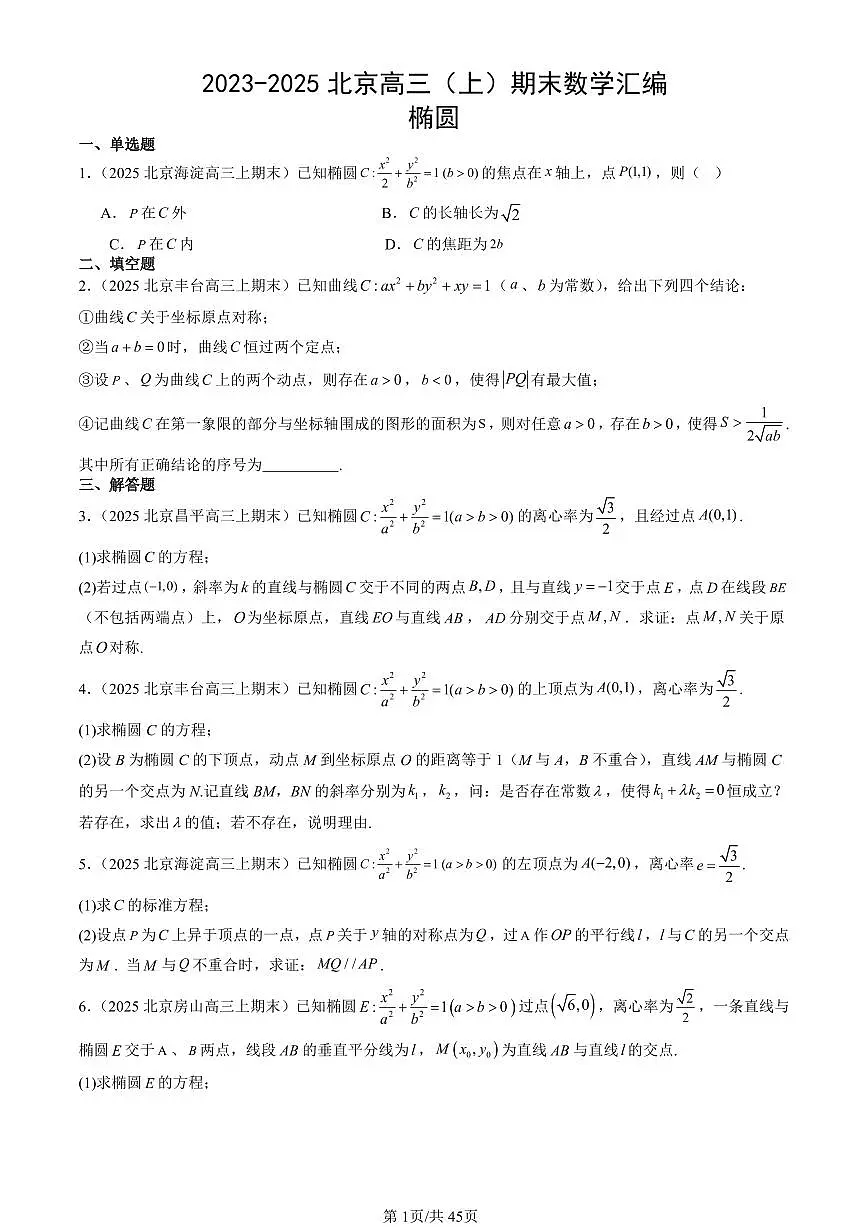 2023-2025 北京高三（上）期末数学汇编
椭圆
一、单选题
1.（2025 北京海淀高三上期末）已知椭圆 $C:\frac{x^2}{2}+\frac{y^2}{b^2}=1\,(b>0)$ 的焦点在 $x$ 轴上，点 $P(1,1)$，则（ ）
A． $P$ 在 $C$ 外 B． $C$ 的长轴长为 $\sqrt{2}$
C． $P$ 在 $C$ 内 D． $C$ 的焦距为 $2b$
二、填空题
2.（2025 北京丰台高三上期末）已知曲线 $C:ax^2+by^2+xy=1$（ $a$ 、 $b$ 为常数），给出下列四个结论：
①曲线 $C$ 关于坐标原点对称；
②当 $a+b=0$ 时，曲线 $C$ 恒过两个定点；
③设 $P$ 、 $Q$ 为曲线 $C$ 上的两个动点，则存在 $a>0$，$b<0$，使得 $|PQ|$ 有最大值；
④记曲线 $C$ 在第一象限的部分与坐标轴围成的图形的面积为 S，则对任意 $a>0$，存在 $b>0$，使得 $S>\frac{1}{2\sqrt{ab}}$．
其中所有正确结论的序号为__________．
三、解答题
3.（2025 北京昌平高三上期末）已知椭圆 $C:\frac{x^2}{a^2}+\frac{y^2}{b^2}=1(a>b>0)$ 的离心率为 $\frac{\sqrt{3}}{2}$，且经过点 $A(0,1)$．
(1)求椭圆 $C$ 的方程；
(2)若过点 $(-1,0)$，斜率为 $k$ 的直线与椭圆 $C$ 交于不同的两点 $B,D$，且与直线 $y=-1$ 交于点 $E$，点 $D$ 在线段 $BE$
（不包括两端点）上，$O$ 为坐标原点，直线 $EO$ 与直线 $AB$，$AD$ 分别交于点 $M,N$．求证：点 $M,N$ 关于原
点 $O$ 对称.
4.（2025 北京丰台高三上期末）已知椭圆 $C:\frac{x^2}{a^2}+\frac{y^2}{b^2}=1(a>b>0)$ 的上顶点为 $A(0,1)$，离心率为 $\frac{\sqrt{3}}{2}$.
(1)求椭圆 C 的方程；
(2)设 B 为椭圆 C 的下顶点，动点 M 到坐标原点 O 的距离等于 1（M 与 A，B 不重合），直线 AM 与椭圆 C
的另一个交点为 N.记直线 BM，BN 的斜率分别为 $k_1$，$k_2$，问：是否存在常数 $\lambda$，使得 $k_1+\lambda k_2=0$ 恒成立？
若存在，求出 $\lambda$ 的值；若不存在，说明理由.
5.（2025 北京海淀高三上期末）已知椭圆 $C:\frac{x^2}{a^2}+\frac{y^2}{b^2}=1\,(a>b>0)$ 的左顶点为 $A(-2,0)$，离心率 $e=\frac{\sqrt{3}}{2}$.
(1)求 $C$ 的标准方程；
(2)设点 $P$ 为 $C$ 上异于顶点的一点，点 $P$ 关于 $y$ 轴的对称点为 $Q$，过 A 作 $OP$ 的平行线 $l$，$l$ 与 $C$ 的另一个交点
为 $M$．当 $M$ 与 $Q$ 不重合时，求证： $MQ//AP$．
6.（2025 北京房山高三上期末）已知椭圆 $E:\frac{x^2}{a^2}+\frac{y^2}{b^2}=1(a>b>0)$ 过点 $(\sqrt{6},0)$，离心率为 $\frac{\sqrt{2}}{2}$，一条直线与
椭圆 $E$ 交于 A 、 $B$ 两点，线段 $AB$ 的垂直平分线为 $l$，$M(x_0,y_0)$ 为直线 $AB$ 与直线 $l$ 的交点.
(1)求椭圆 $E$ 的方程；
第 1页/共 45页